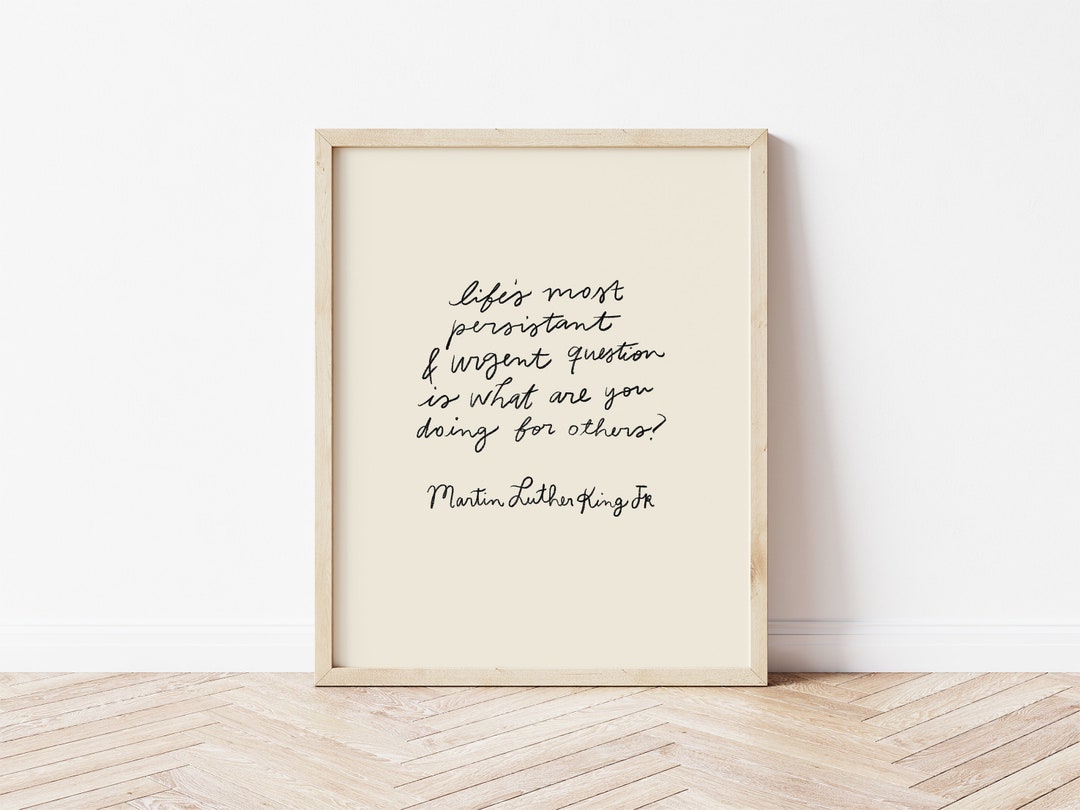 life's most
persistant
& urgent question
is what are you
doing for others?
Martin Luther King JR